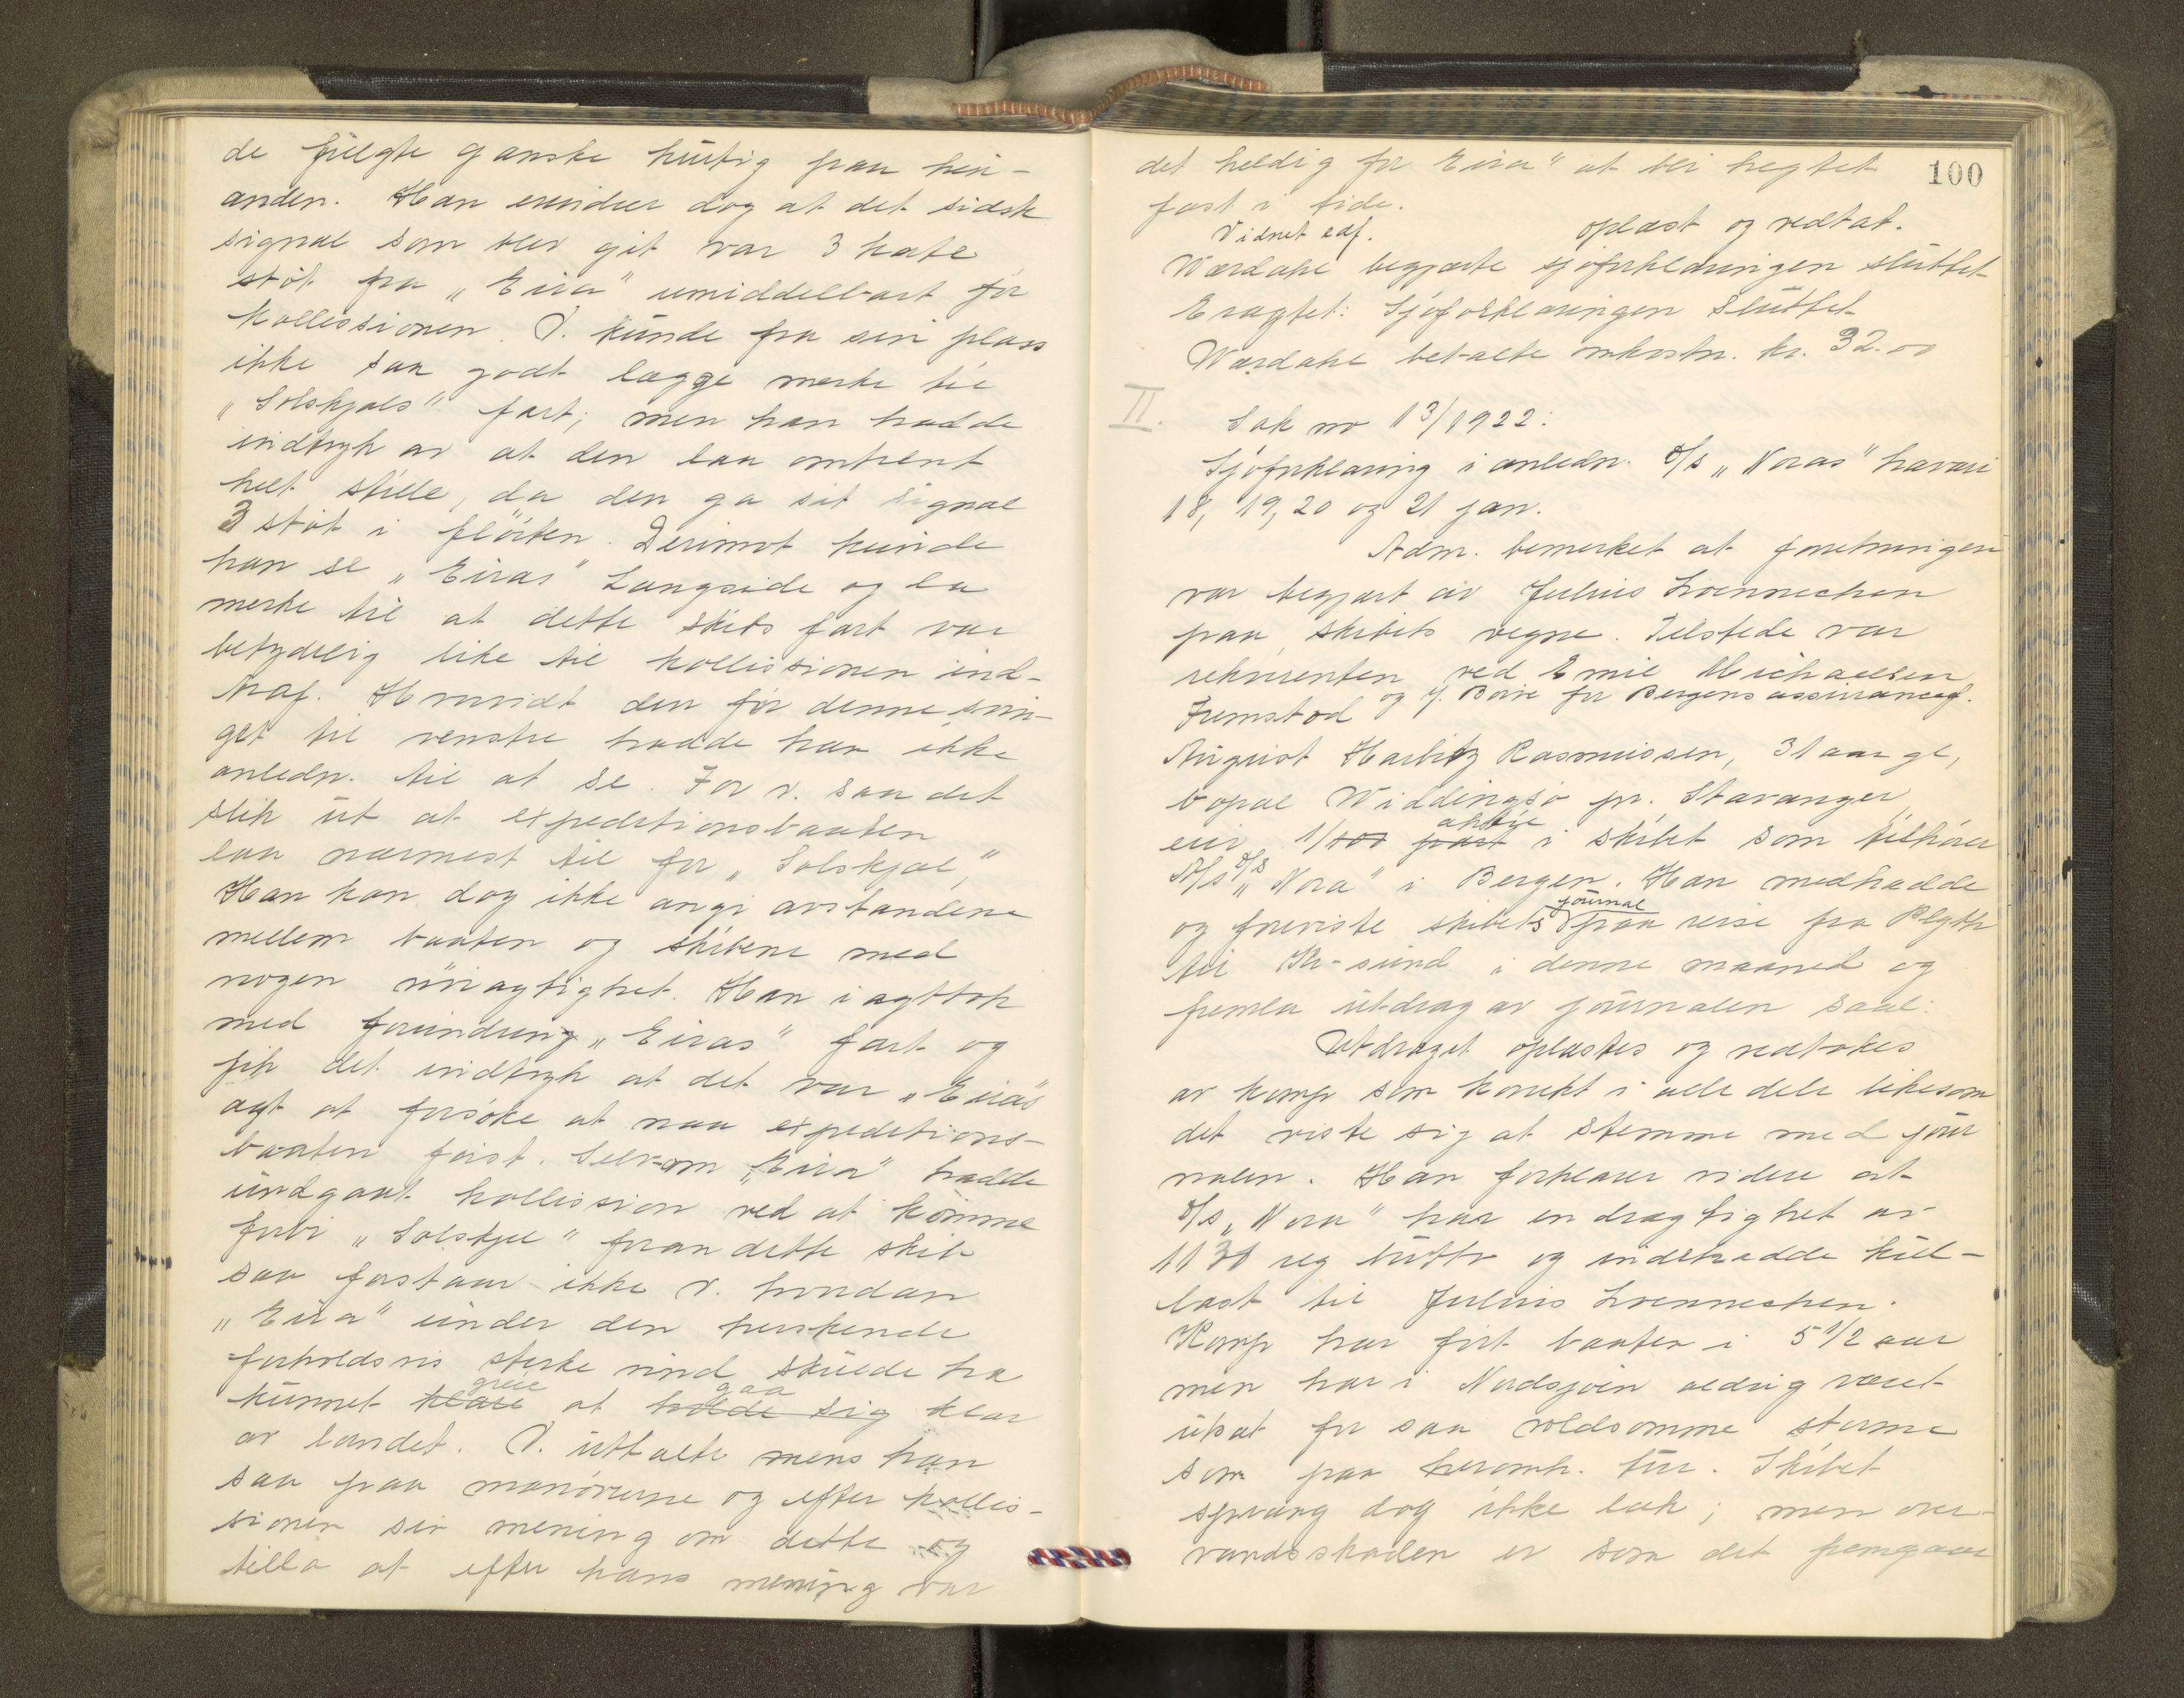 de fulgte ganske hurtig paa hin-
anden. Han erindrer dog at det sidste
signal som blev git var 3 korte
støt fra „Eira" umiddelbart før
kollissionen. V. kunde fra sin plass
ikke saa godt lægge merke til
„Solskjæls" fart; men han hadde
indtryk av at den laa omtrent
helt stille, da den ga sit signal
3 støt i fløiten. Derimot kunde
han se „Eiras" Langside og la
merke til at dette skibs fart var
betydelig like til kollissionen ind-
traf. Hvorvidt den før denne svin-
get til venstre hadde han ikke
anledn. til at se. For v. saa det
slik ut at expeditionsbaaten
laa nærmest til for „Solskjæl",
Han kan dog ikke angi avstandene
mellem baaten og skibene med
nogen nöiagtighet. Han iagttok
med forundring „Eiras" fart og
fik det indtryk at det var „Eiras"
agt at forsøke at naa expeditions-
baaten først. Selv om „Eira" hadde
undgaat kollission ved at komme
forbi „Solskjel" foran dette skib
saa forstaar ikke v. hvordan
„Eira" under den herskende
forholdsvis sterke vind skulde ha
kunnet klare greie at holde sig gaa klar
av landet. V. uttalte mens han
saa paa manövrerne og efter kollis-
sionen sin mening om dette og
tilla at efter hans mening var
100
det heldig for Eira" at bli hegtet
fast i tide.
Vidnet edf. oplæst og vedtat.
Wærdahl begjærte sjøforklaringen sluttet
Eragtet: Sjøforklaringen sluttet
Wærdahl betalte omkostn. kr. 32.00
II. Sak no 13/1922:
Sjøforklaring i anledn. D/s „Noras" havari
18, 19, 20 og 21 jan.
Adm. bemerket at forretningen
var begjært av Julius Loennechen
paa skibets vegne. Tilstede var
rekvirenten ved Emil Michaelsen
og J. Bøve for Bergens assurancef.
Fremstod
August Harbitz Rasmussen, 31 aar gl,
bopæl Widdingsjø pr. Stavanger
eier 1/100 part aktie i skibet som tilhører
A/s D/s „Nora" i Bergen. Han medhadde
og foreviste skibets journal paa reise fra Blyth
til Kr-sund i denne maaned og
fremla utdrag av journalen saal:
Utdraget oplæstes og vedtokes
av komp som korrekt i alle dele likesom
det viste sig at stemme med jour
nalen. Han forklarer videre at
D/s „Nora" har en drægtighet av
1130 reg brutto og indehadde kul-
last til Julius Loennechen.
Komp har ført baaten i 5 1/2 aar
men har i Nordsjøen aldrig været
utsat for saa voldsomme storme
som paa heromh. tur. Skibet
sprang dog ikke læk; men over-
vandsskaden er som det fremgaar